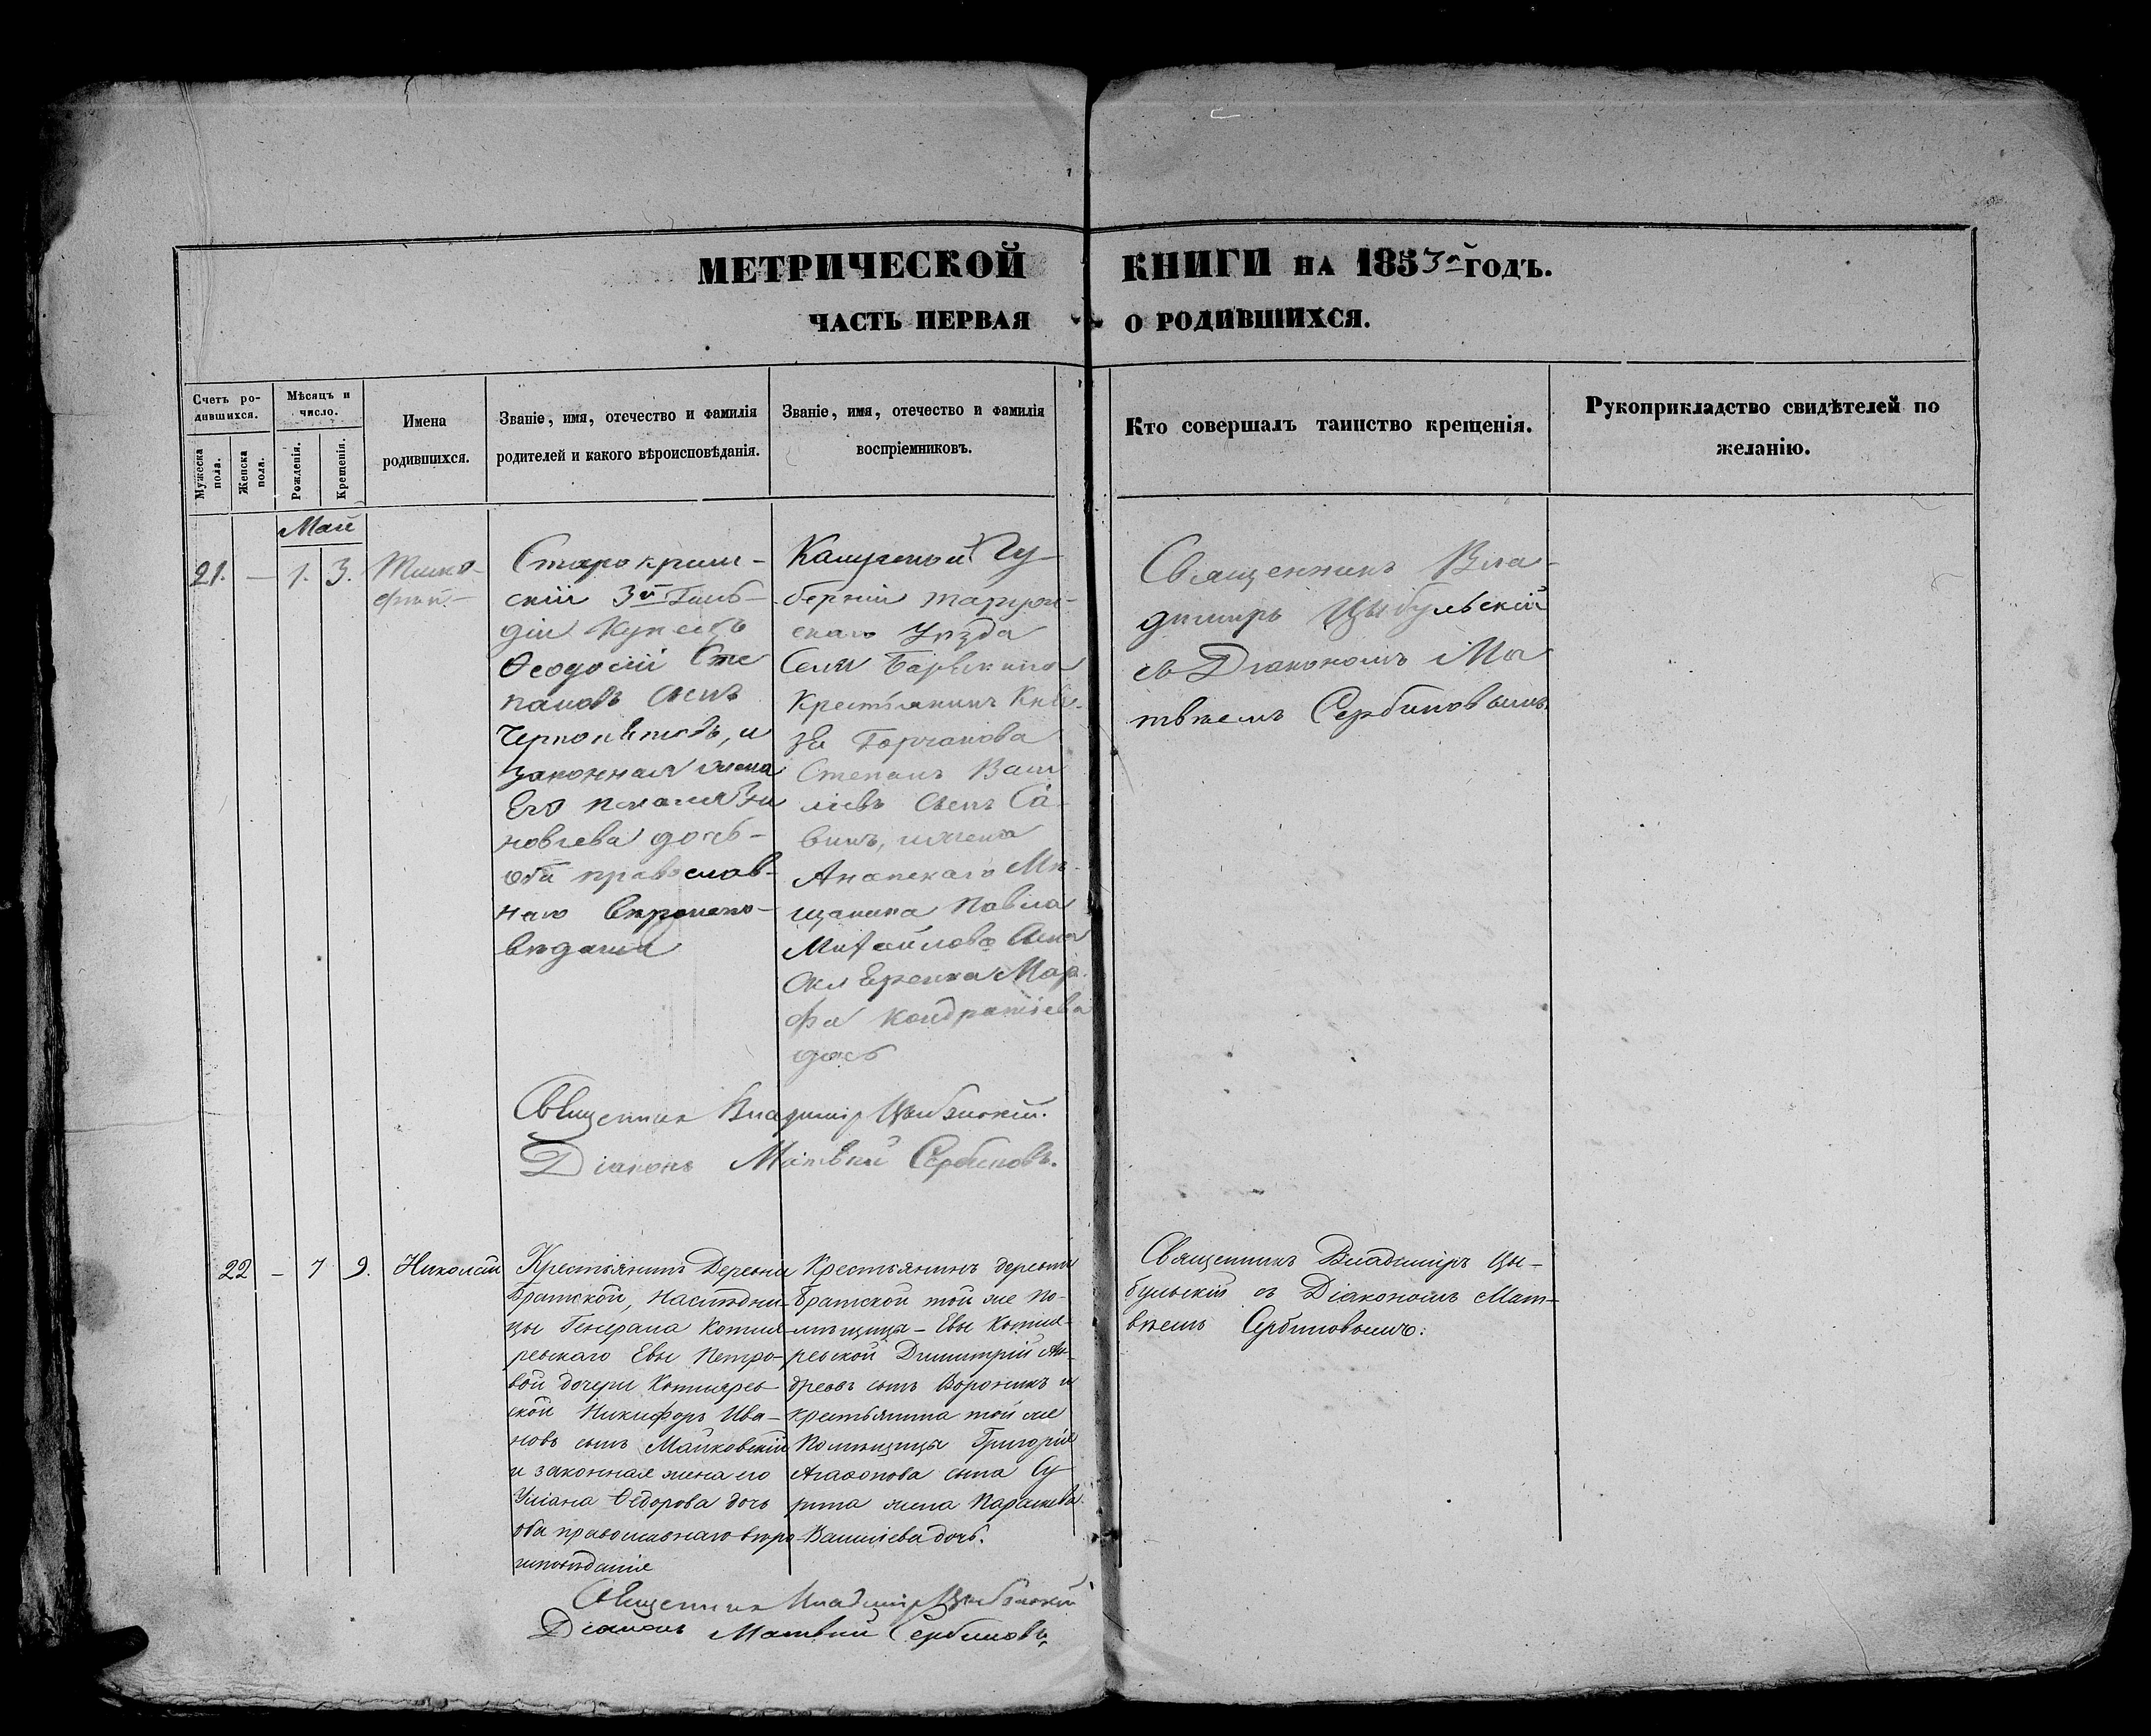 МЕТРИЧЕСКОЙ КНИГИ НА 1853й ГОДЪ.
ЧАСТЬ ПЕРВАЯ О РОДИВШИХСЯ.
Счетъ ро-
дившихся.
Мужеска пола.
Женска пола.
Мѣсяцъ и
число.
Рожденія.
Крещенія.
Имена
родившихся.
Званіе, имя, отечество и фамилія
родителей и какого вѣроисповѣданія.
Званіе, имя, отечество и фамилія
воспріемниковъ.
Кто совершалъ таинство крещенія.
Рукоприкладство свидѣтелей по
желанію.
Май
21. — 1. 3.
Тимо-
фей
Старокрым-
скій 3й Гиль-
діи Купецъ
Ѳеодосій Сте
пановъ сынъ
и
законная жена
его Зи
новіева дочь-
оба православ-
наго вѣроиспо-
вѣданія
Калужской Гу-
берніи
скаго Уѣзда
Села
Крестьянинъ Кня-
зя Горчакова
Степанъ Васи
ліевъ сынъ Са-
винъ, и жена
Анапскаго Мѣ-
щанина Павла
Михайлова сына
Мар-
фа Кондратіева
дочь
Священникъ Вла-
димиръ Цыбульскій
съ Діакономъ Ма
твѣемъ Сербиновымъ.
Священникъ Владиміръ Цыбульскій.
Діаконъ Матвѣй Сербиновъ.
22 — 7 9. Николай
Крестьянинъ Деревни
Братской, Наслѣдни-
цы Генерала Котля-
ревскаго Евы Петро-
вой дочери Котлярев-
ской Никифоръ Ива-
новъ сынъ Майковскій
и законная жена его
Уліана Ѳедорова дочь
оба православнаго вѣро
исповѣданія
Крестьянинъ деревни
Братской той же По-
мѣщицы - Евы Котля-
ревской Димитрій Ан-
дреевъ сынъ Вороникъ и
крестьянина той же
Помѣщицы Григорія
Агаѳонова сына Су
рина жена Параскева
Василіева дочь.
Священникъ Владиміръ Цы-
бульскій съ Діакономъ Мат-
вѣемъ Сербиновымъ:
Священникъ Владиміръ Цыбульскій
Діаконъ Матвѣй Сербиновъ,